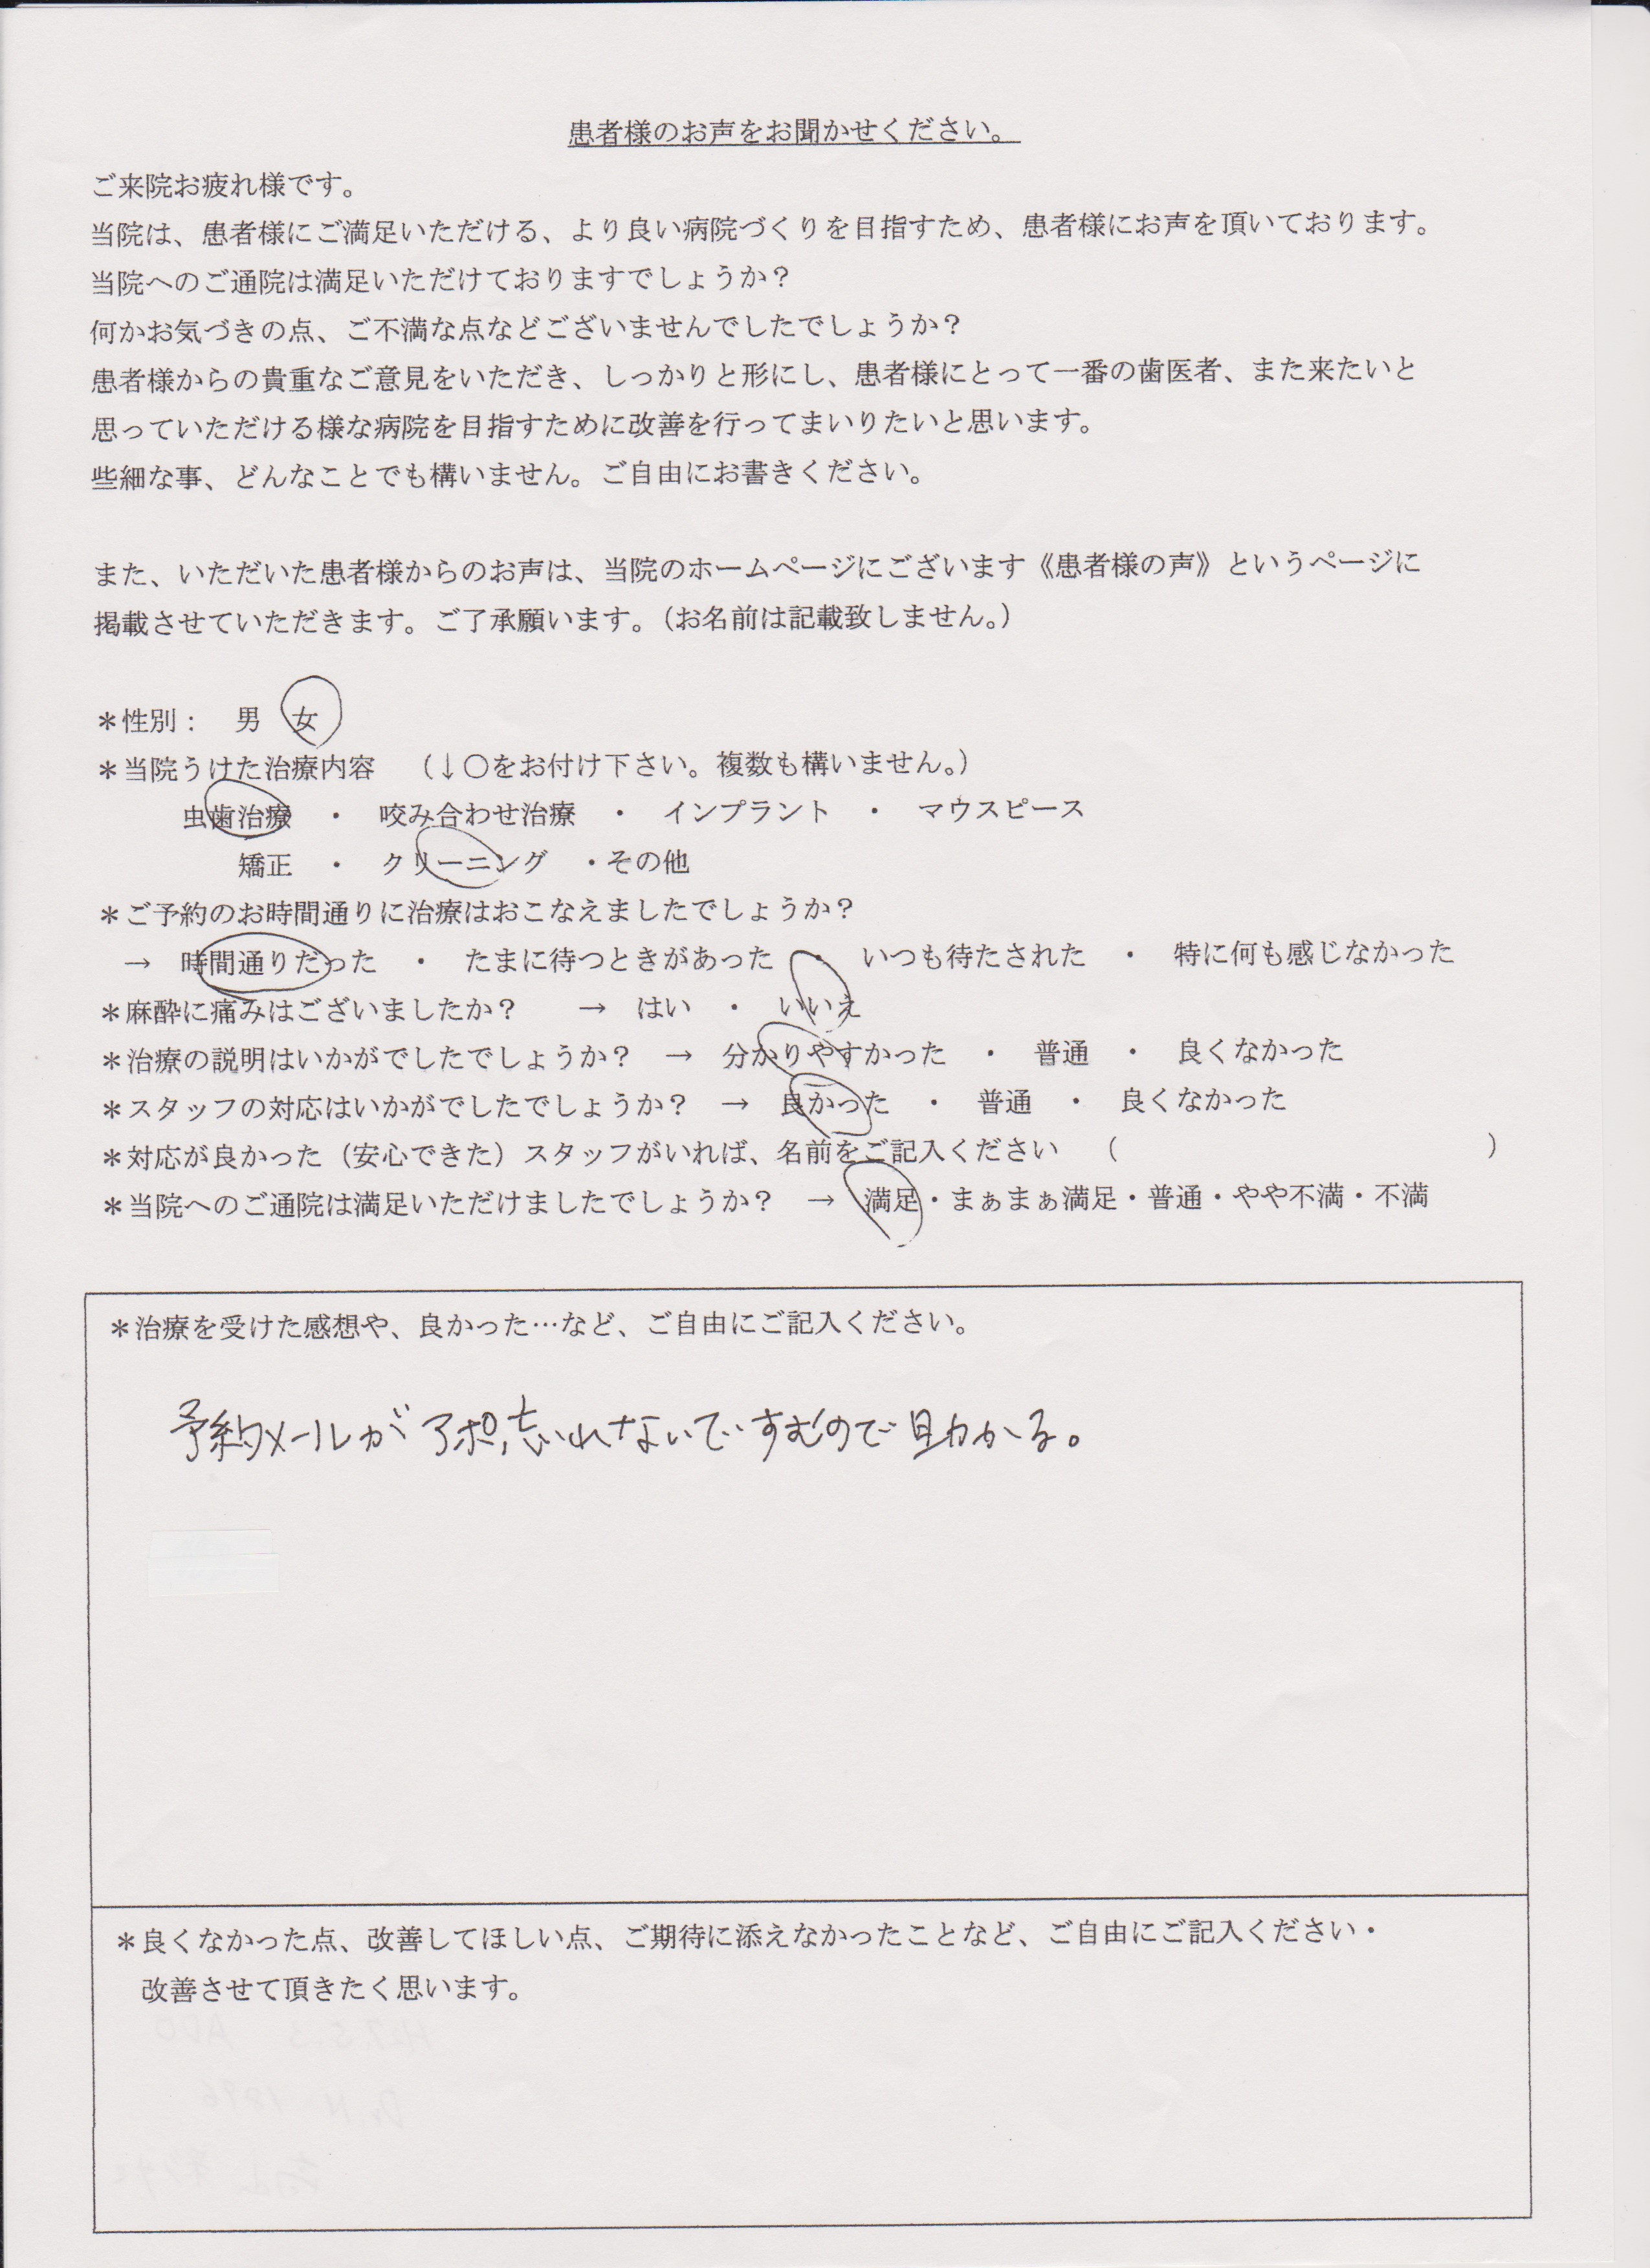 患者様のお声をお聞かせください。
ご来院お疲れ様です。
当院は、患者様にご満足いただける、より良い病院づくりを目指すため、患者様にお声を頂いております。
当院へのご通院は満足いただけておりますでしょうか？
何かお気づきの点、ご不満な点などございませんでしたでしょうか？
患者様からの貴重なご意見をいただき、しっかりと形にし、患者様にとって一番の歯医者、また来たいと
思っていただける様な病院を目指すために改善を行ってまいりたいと思います。
些細な事、どんなことでも構いません。ご自由にお書きください。
また、いただいた患者様からのお声は、当院のホームページにございます《患者様の声》というページに
掲載させていただきます。ご了承願います。（お名前は記載致しません。）
＊性別： 男 女
＊当院うけた治療内容 （↓○をお付け下さい。複数も構いません。）
虫歯治療 ・ 咬み合わせ治療 ・ インプラント ・ マウスピース
矯正 ・ クリーニング ・その他
＊ご予約のお時間通りに治療はおこなえましたでしょうか？
→ 時間通りだった ・ たまに待つときがあった ・ いつも待たされた ・ 特に何も感じなかった
＊麻酔に痛みはございましたか？ → はい ・ いいえ
＊治療の説明はいかがでしたでしょうか？ → 分かりやすかった ・ 普通 ・ 良くなかった
＊スタッフの対応はいかがでしたでしょうか？ → 良かった ・ 普通 ・ 良くなかった
＊対応が良かった（安心できた）スタッフがいれば、名前をご記入ください （ ）
＊当院へのご通院は満足いただけましたでしょうか？ → 満足・まぁまぁ満足・普通・やや不満・不満
＊治療を受けた感想や、良かった…など、ご自由にご記入ください。
予約メールが アポ忘れないですむので助かる。
＊良くなかった点、改善してほしい点、ご期待に添えなかったことなど、ご自由にご記入ください・
改善させて頂きたく思います。